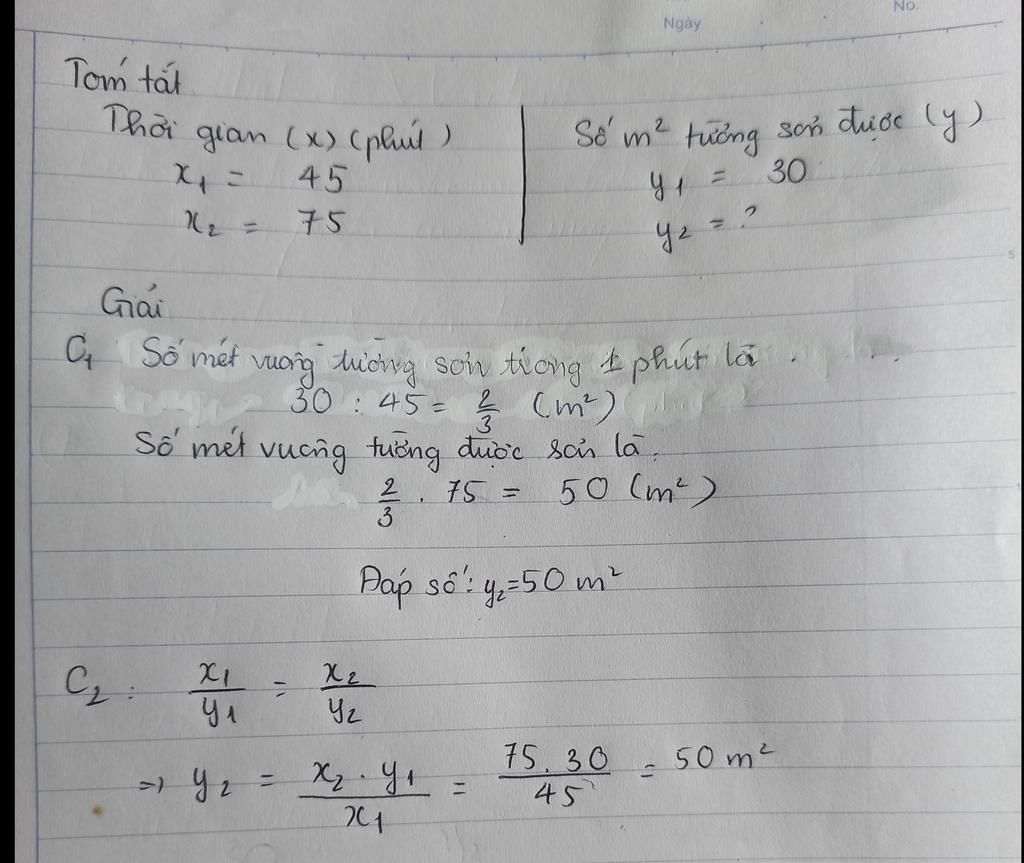 No.
Ngày
Tóm tắt
Thời gian (x) (phút)
x₁ = 45
x₂ = 75
Số m² tường sơn được (y)
y₁ = 30
y₂ = ?
Giải
C₁ Số mét vuông tường sơn trong 1 phút là
30 : 45 = 2/3 (m²)
Số mét vuông tường được sơn là.
2/3 . 75 = 50 (m²)
Đáp số: y₂=50 m²
C₂ : x₁/y₁ = x₂/y₂
=> y₂ = x₂ . y₁/x₁ = 75.30/45 = 50 m²